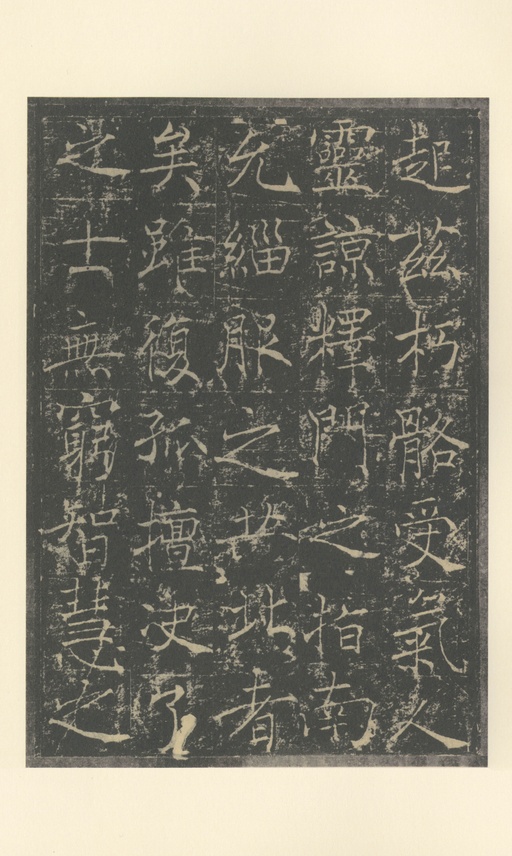 起茲朽骼受氣人
靈諒釋門之指南
緇服之此者
矣雖復孤擅決了
之士無窮智慧之